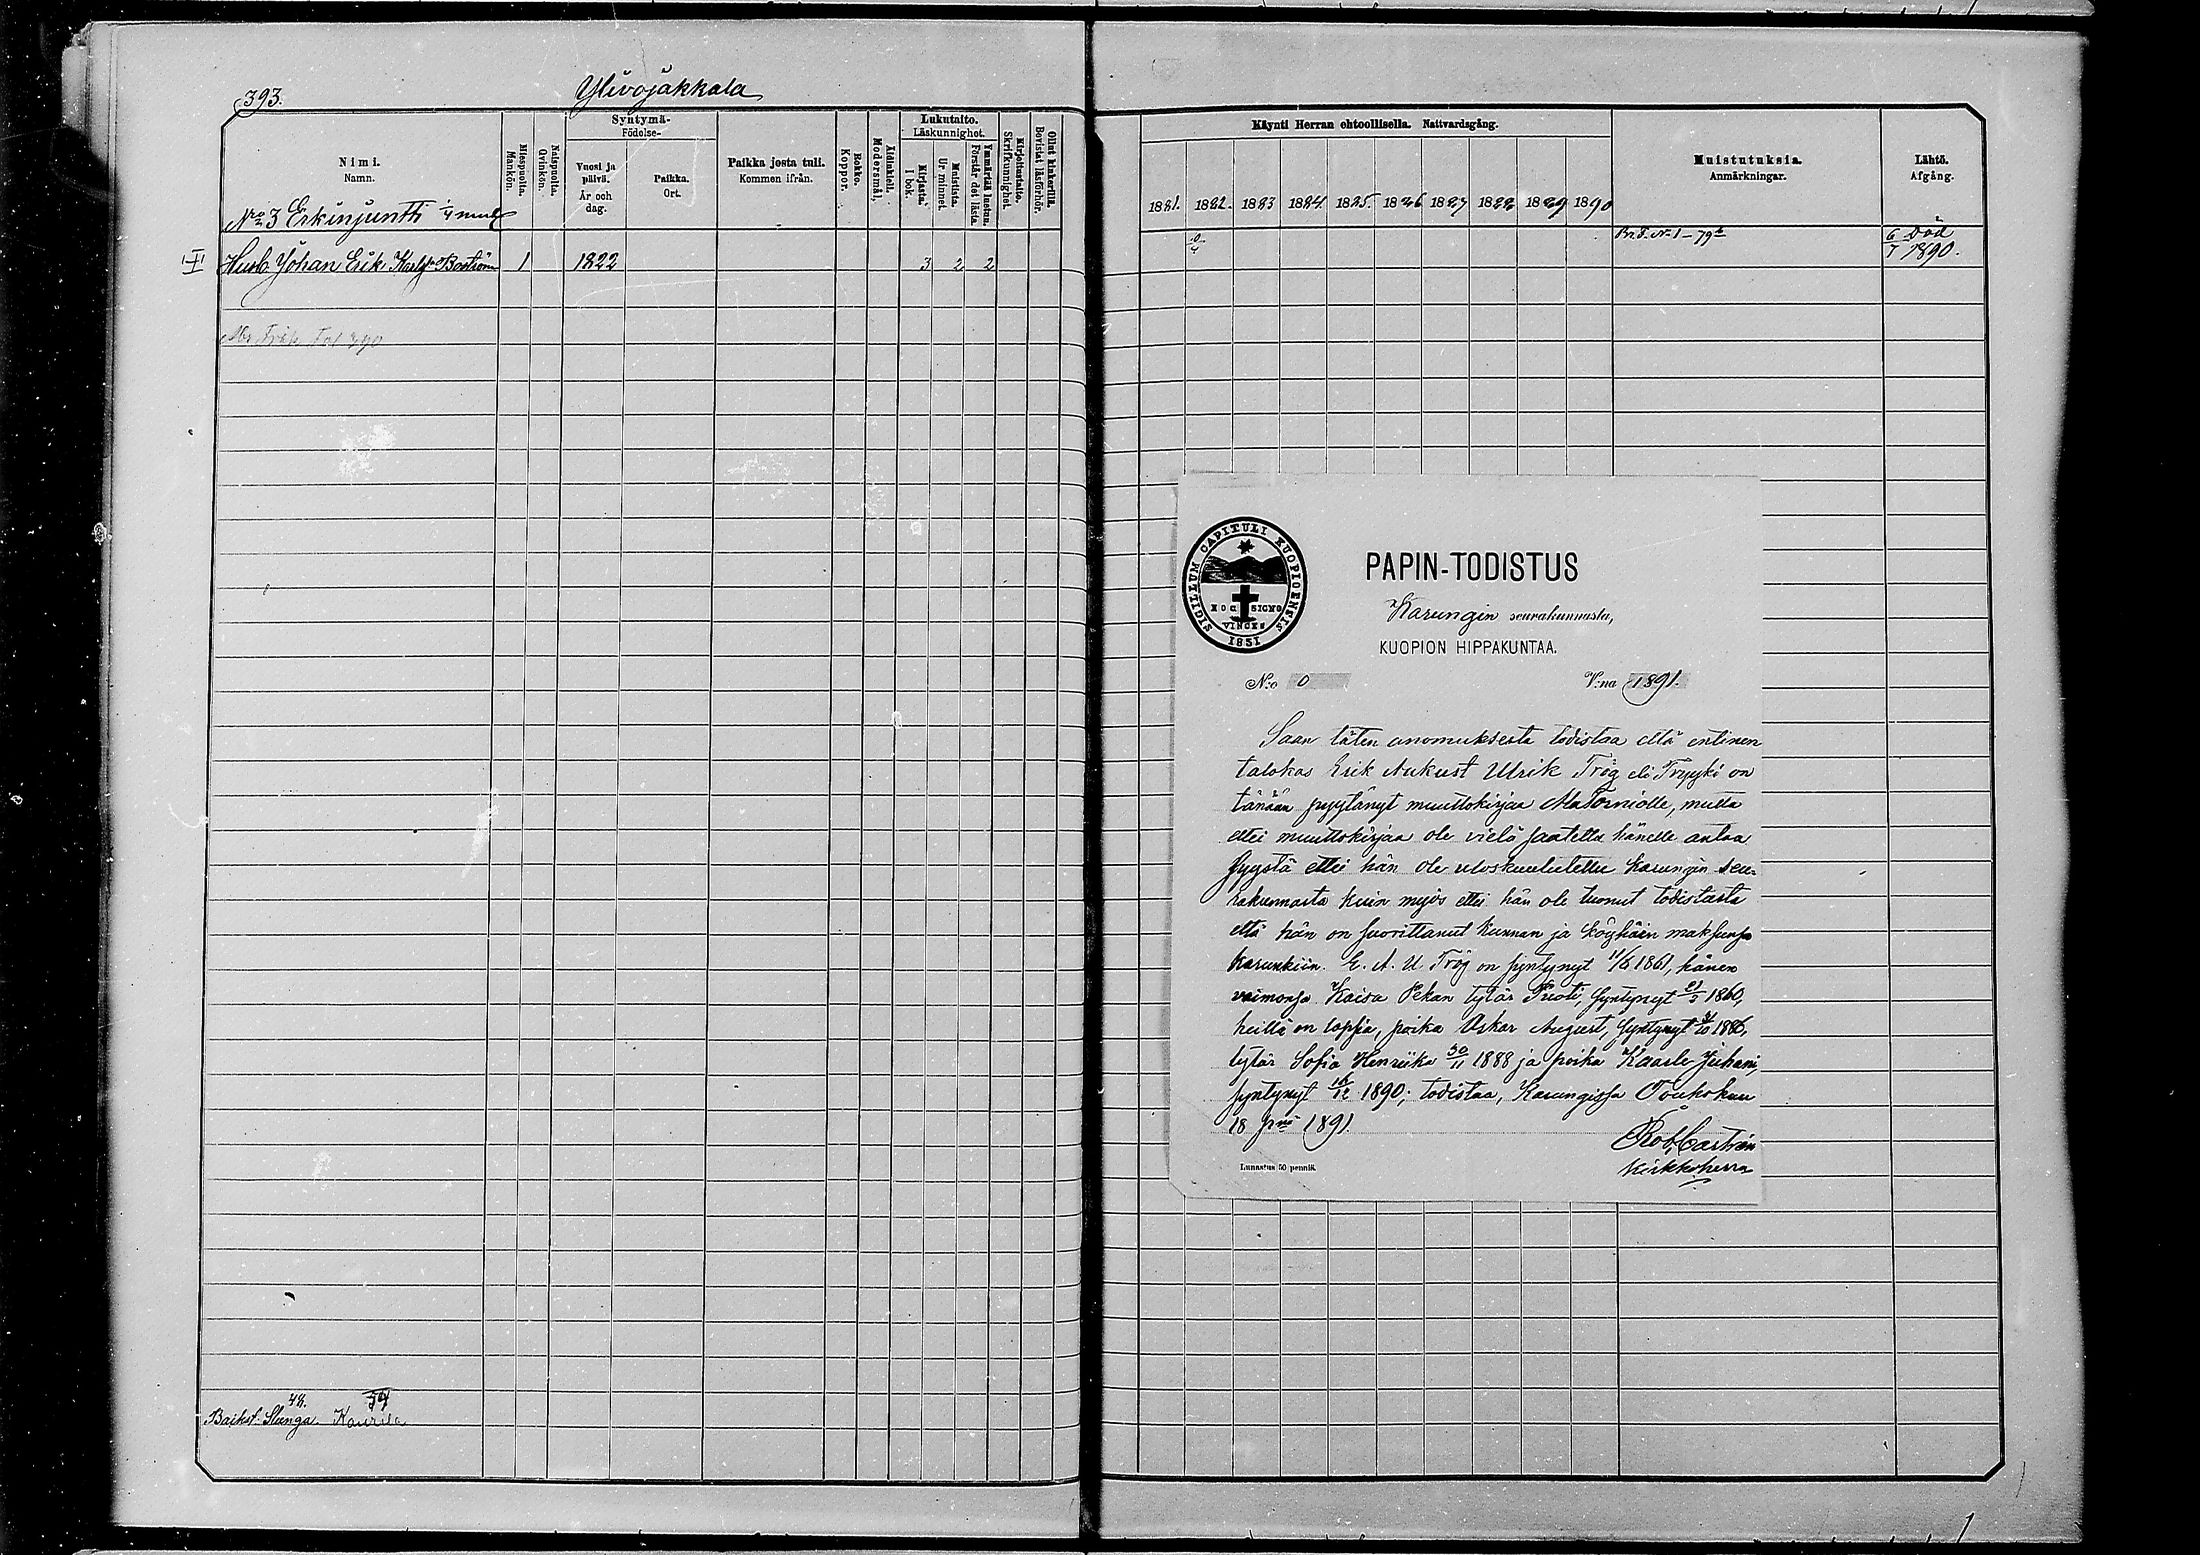 393.
Ylivojakkala
Nimi.
Namn.
Miespuolta.
Mankön.
Naispuolta.
Qvinkön.
Syntymä-
Födelse-
Vuosi ja
päivä.
År och
dag.
Paikka.
Ort.
Paikka josta tuli.
Kommen ifrån.
Rokko.
Koppor.
Äidinkieli.
Modersmål.
Lukutaito.
Läskunnighet.
Kirjasta.
I bok.
Muistista.
Ur minnet.
Ymmärtää luetun.
Förstår det lästa.
Kirjoitustaito.
Skrifkunnighet.
Ollut kinkerillä.
Bevistat läsförhör.
Nro 3 Erkinjuntti 1/4 mtl
Husb. Johan Erik Karlss. Boström 1 1822 3 2 2
Fol 390
48.
Slunga Kaurila
Käynti Herran ehtoollisella. Nattvardsgång.
1881. 1882. 1883 1884 1885. 1886 1887 1888 1889 1890
Muistutuksia.
Anmärkningar.
Lähtö.
Afgång.
Död
1890.
SIGILLUM CAPITULI KUOPIOENSIS
HOC SIGNO
VINCES
1851
PAPIN-TODISTUS
Karungin seurakunnasta,
KUOPION HIPPAKUNTAA.
N:o 0 V:na 1891.
Saan täten anomuksesta todistaa että entinen
talokas Erik Aukust Ulrik Trög eli Tryyki on
tänään pyytänyt muuttokirjaa AlaTorniolle, mutta
ettei muuttokirjaa ole vielä saatettu hänelle antaa
syystä ettei hän ole uloskuulutettu Karungin seu-
rakunnasta kuin myös ettei hän ole tuonut todistusta
että hän on suorittanut kunnan ja köyhäin maksunsa
Karunkiin. E. A. U. Trög on syntynyt 1861, hänen
vaimonsa Kaisa Pekan tytär syntynyt 1860,
heillä on lapsia, poika Oskar August, syntynyt 1886,
tytär Sofia Henriika 30/11 1888 ja poika Kaarle Juhani,
syntynyt 16/12 1890; todistaa, Karungissa Toukokuu
18 pnä 1891.
Rob. Castrén
Kirkkoherra
Lunastus 50 penniä.